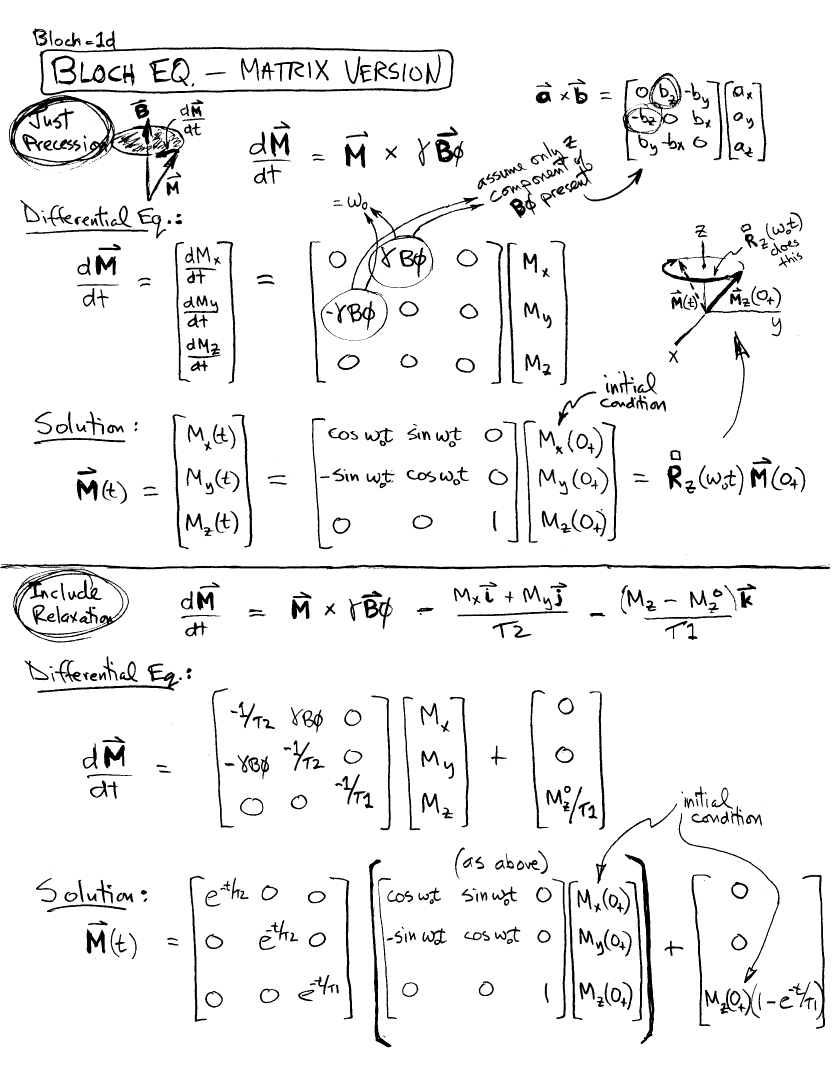 Bloch-1d
BLOCH EQ. – MATRIX VERSION
Just Precession
B⃗
dM⃗/dt
M⃗
dM⃗/dt = M⃗ × γB⃗ϕ
a⃗ × b⃗ = [0 bz -by; -bz 0 bx; by -bx 0] [ax; ay; az]
assume only z component of Bϕ present
Differential Eq.:
= ω₀
dM⃗/dt = [dMx/dt; dMy/dt; dMz/dt] = [0 γBϕ 0; -γBϕ 0 0; 0 0 0] [Mx; My; Mz]
z
R̊z(ω₀t) does this
M⃗(t)
M⃗z(0+)
x
y
initial condition
Solution:
M⃗(t) = [Mx(t); My(t); Mz(t)] = [cos ω₀t sin ω₀t 0; -sin ω₀t cos ω₀t 0; 0 0 1] [Mx(0+); My(0+); Mz(0+)] = R̊z(ω₀t) M⃗(0+)
Include Relaxation
dM⃗/dt = M⃗ × γB⃗ϕ – (Mx i⃗ + My j⃗)/T2 – (Mz – Mz°)k⃗/T1
Differential Eq.:
dM⃗/dt = [-1/T2 γBϕ 0; -γBϕ -1/T2 0; 0 0 -1/T1] [Mx; My; Mz] + [0; 0; Mz°/T1]
initial condition
(as above)
Solution:
M⃗(t) = [e^-t/T2 0 0; 0 e^-t/T2 0; 0 0 e^-t/T1] ([cos ω₀t sin ω₀t 0; -sin ω₀t cos ω₀t 0; 0 0 1] [Mx(0+); My(0+); Mz(0+)]) + [0; 0; Mz(0+)(1 – e^-t/T1)]